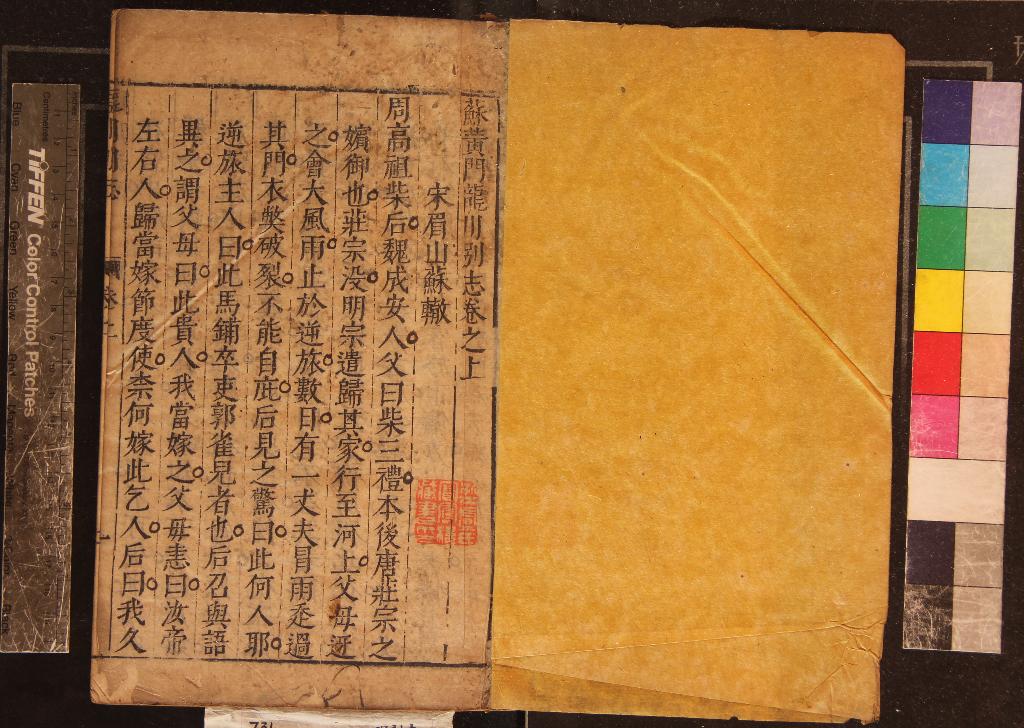 蘇黃門龍川別志卷之上
宋眉山蘇轍
周高祖柴后魏成安人父曰柴三禮本後唐莊宗之
嬪御也莊宗没明宗遣歸其家行至河上父母迓
之會大風雨止於逆旅數日有一丈夫冒雨走過
其門衣獘破裂不能自庇后見之驚曰此何人耶
逆旅主人曰此馬鋪卒吏郭雀兒者也后召與語
異之謂父母曰此貴人我當嫁之父母恚曰汝帝
左右人歸當嫁節度使柰何嫁此乞人后曰我久
TIFFEN Color Control Patches
Blue
Cyan
Green
Yellow
Red
Black
Centimetres
731